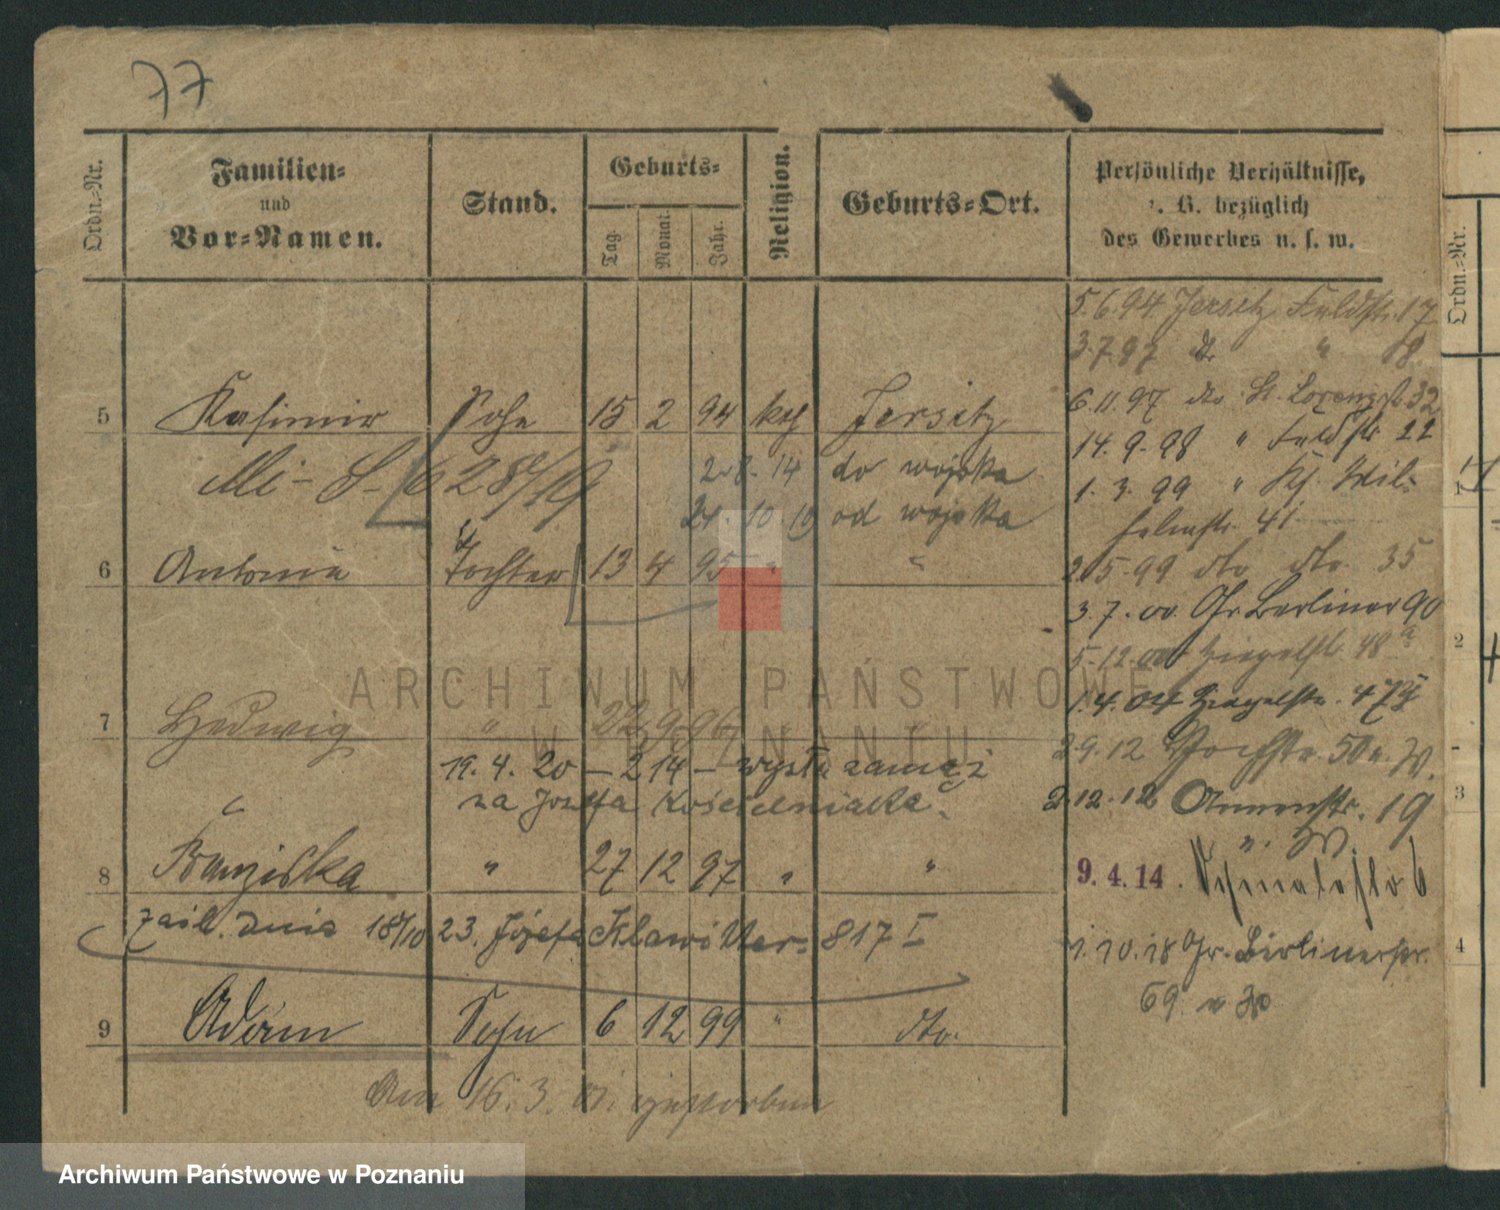 77
Ordn.-Nr.
Familien-
und
Vor-Namen.
Stand.
Geburts-
Tag.
Monat.
Jahr.
Religion.
Geburts-Ort.
Persönliche Verhältnisse,
z. B. bezüglich
des Gewerbes u. s. w.
Ordn.-Nr.
5.6.94 Jersitz Feldstr. 17
3.7.97 dto " 18
6.11.97 dto St. Lorenzstr 32
5 Kasimir Sohn 15 2 94 kth Jersitz
14.9.98 " Feldstr 22
2.8.14 do wojska
1.3.99 " Ks. Wil-
helmstr. 41
21 10 19 od wojska
6 Antonie Tochter 13 4 95 " "
2.5.99 dto dto. 35
3.7.00. Gr Berliner 90
5.12.00 Ziegelstr 48a
1.4.04 Ziegelstr. 47
7 Hedwig " 22 9 96 " "
2.9.12 50 a. W.
19.4.20 – 214 – wyst. zamąż
za Józefa Kościelniaka.
2.12.12 Annenstr. 19
8 Franziska " 27 12 97 " "
9.4.14.
zaśl. dnia 18/10 23. Józefa Klawitter 817 I
1.10.18 Gr. Berlinerstr.
69
9 Adam Sohn 6 12 99 " dto.
Am 16.3. 01. gestorben
2
3
4
ARCHIWUM PAŃSTWOWE
W POZNANIU
Archiwum Państwowe w Poznaniu